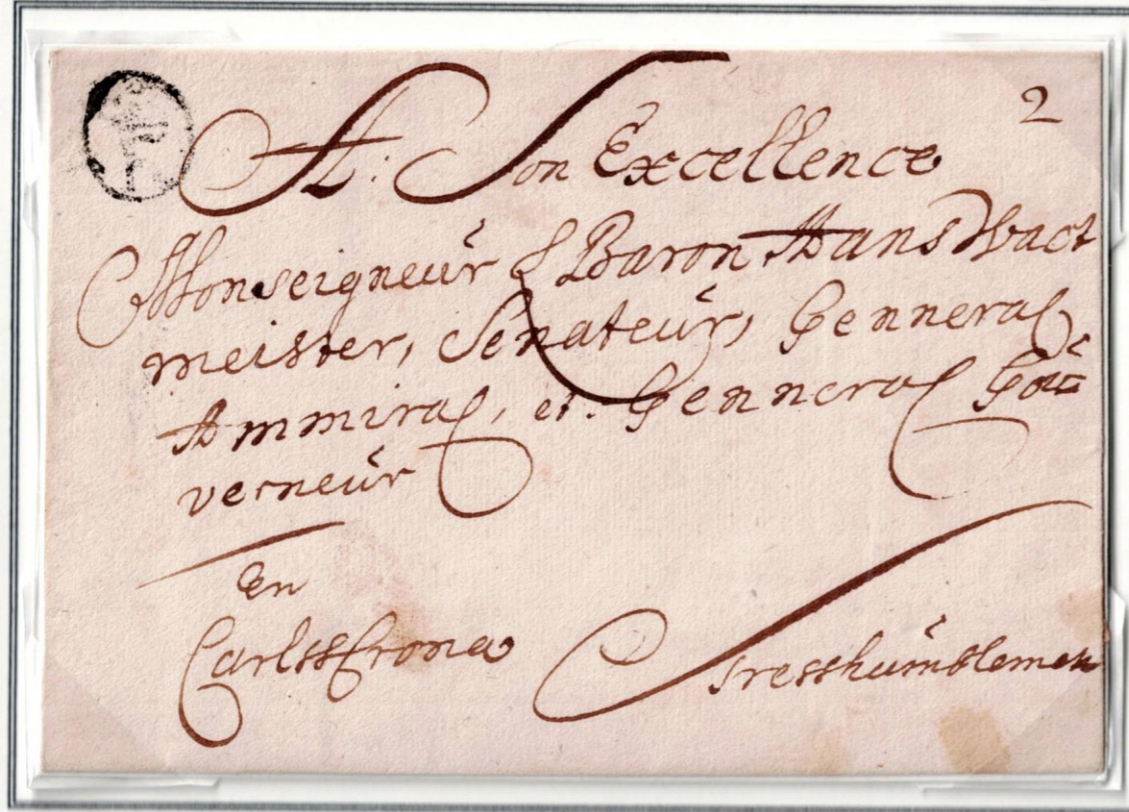 2
A. Son Excellence
Monseigneůr Baron Hans Wact
meister, Senateůr, Genneral
Ammiral, et. Genneral Goů=
verneůr
En
Carlsscrona
Tresshůmblemen